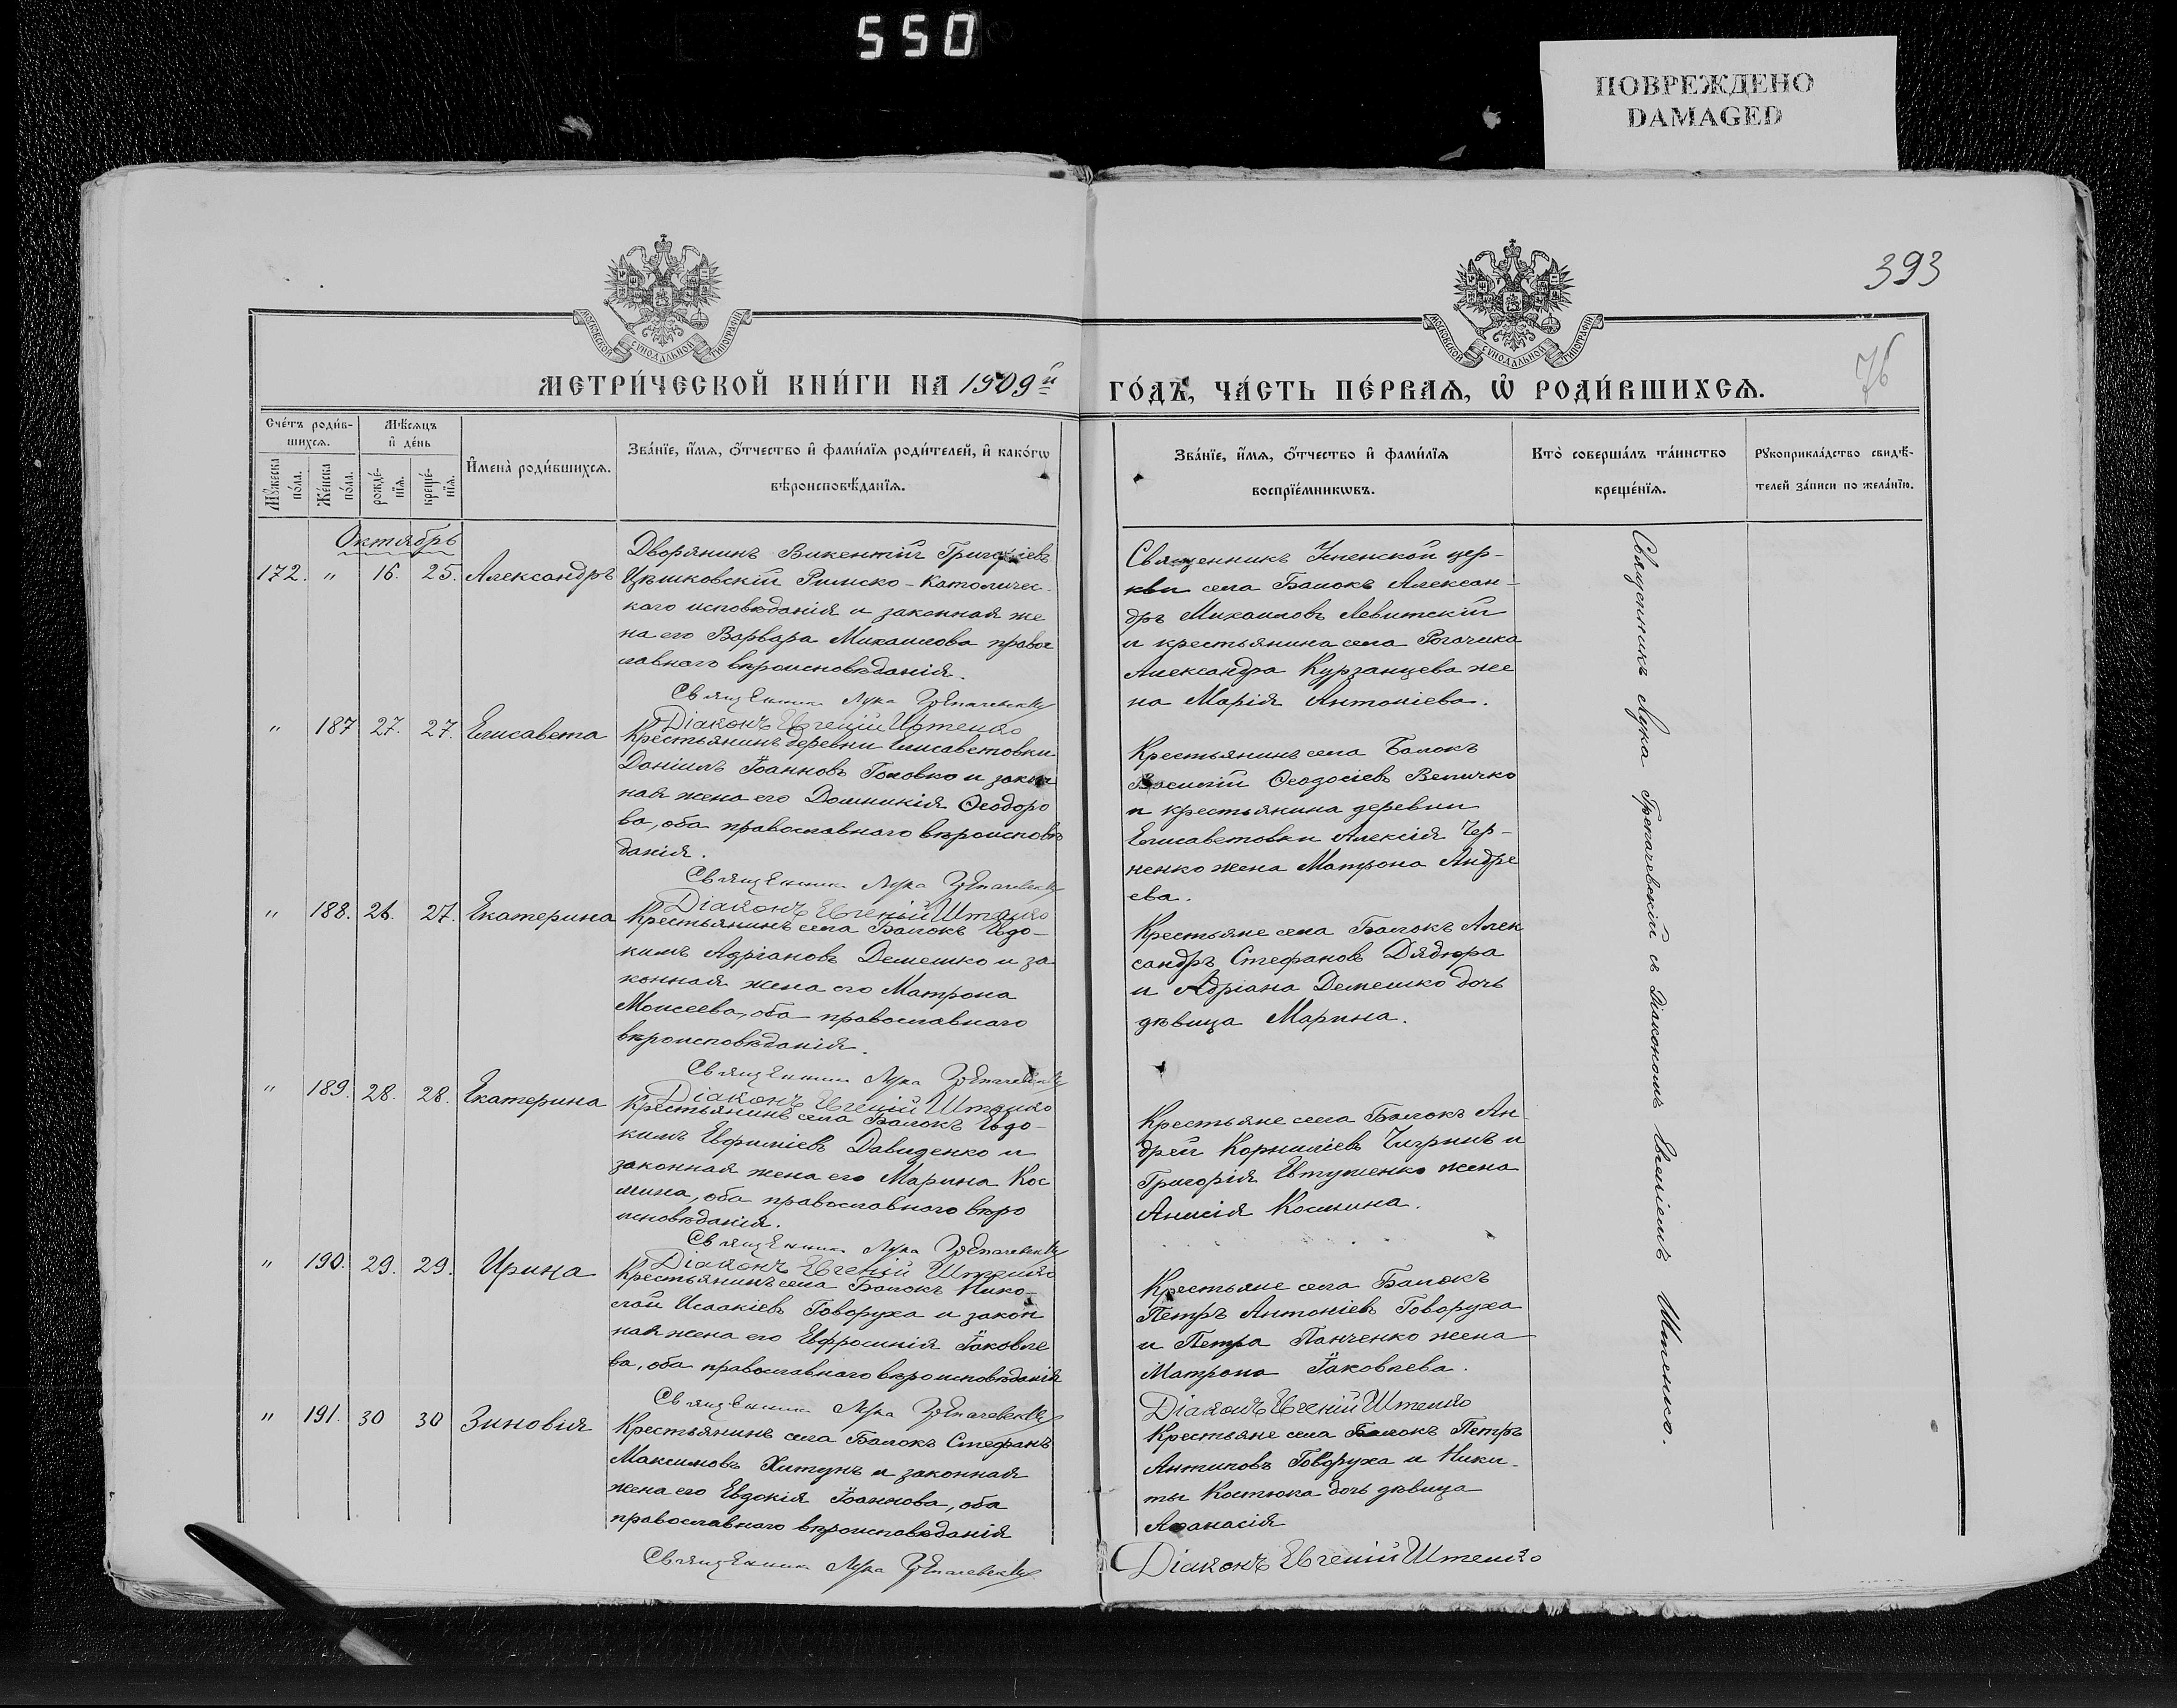 550
ПОВРЕЖДЕНО
DAMAGED
393
76
МОСКОВСКОЙ СѴНОДАЛЬНОЙ ТИПОГРАФІИ
МОСКОВСКОЙ СѴНОДАЛЬНОЙ ТИПОГРАФІИ
МЕТРИ́ЧЕСКОЙ КНИ́ГИ НА 1909й
ГО́ДЪ, ЧА́СТЬ ПЕ́РВАѦ, Ѡ҆ РОДИ́ВШИХСѦ.
Сче́тъ роди́в-
шихсѧ.
Мꙋ́жеска
по́ла.
Же́нска
по́ла.
Мѣ́сѧцъ
и҆ де́нь
рожде́-
нїѧ.
креще́-
нїѧ.
И҆мена̀ роди́вшихсѧ.
Зва́нїе, и҆́мѧ, ѻ҆́тчество и҆ фами́лїѧ роди́телей, и҆ како́гѡ
вѣроисповѣ́данїѧ.
Зва́нїе, и҆́мѧ, ѻ҆́тчество и҆ фами́лїѧ
воспрїе́мникѡвъ.
Кто̀ соверша́лъ та́инство
креще́нїѧ.
Рꙋкоприкла́дство свидѣ́-
телей за́писи по жела́нїю.
Октябрь
172. " 16. 25. Александръ
Дворянинъ Викентій Григоріевъ
Цѣшковскій Римско-Католичес-
каго исповѣданія и законная же
на его Варвара Михаилова правос
лавнаго вѣроисповѣданія.
Священникъ Лука
Діаконъ Евгеній Штенко
Священникъ Успенской цер-
кви села Балокъ Алексан-
дръ Михаиловъ Левитскій
и крестьянина села Рогачика
Александра Курзанцева же
на Марія Антоніева.
" 187 27. 27. Елисавета
Крестьянинъ деревни Елисаветовки
Даніилъ Іоанновъ Головко и закон
ная жена его Домникія Ѳеодоро
ва, оба православнаго вѣроисповѣ
данія.
Священникъ Лука
Діаконъ Евгеній Штенко
Крестьянинъ села Балокъ
Василій Ѳеодосіевъ Величко
и крестьянина деревни
Елисаветовки Алексія Чер-
ненко жена Матрона Андре
ева.
" 188. 26. 27. Екатерина
Крестьянинъ села Балокъ Евдо-
кимъ Адріановъ Демешко и за
конная жена его Матрона
Моисеева, оба православнаго
вѣроисповѣданія.
Священникъ Лука
Діаконъ Евгеній Штенко
Крестьяне села Балокъ Алек
сандръ Стефановъ Дядюра
и Адріана Демешко дочь
дѣвица Марина.
" 189. 28. 28. Екатерина
Крестьянинъ села Балокъ Евдо-
кимъ Евфиміевъ Давиденко и
законная жена его Марина Кос
мина, оба православнаго вѣро
исповѣданія.
Священникъ Лука
Діаконъ Евгеній Штенко
Крестьяне села Балокъ Ан-
дрей Корниліевъ Чигринъ и
Григорія Евтушенко жена
Анисія Космина.
" 190. 29. 29. Ирина
Крестьянинъ села Балокъ Нико-
лай Исаакіевъ Говоруха и закон
ная жена его Евфросинія Іаковле
ва, оба православнаго вѣроисповѣданія
Священникъ Лука
Крестьяне села Балокъ
Петръ Антоніевъ Говоруха
и Петра Панченко жена
Матрона Іаковлева.
Діаконъ Евгеній Штенко
" 191. 30 30 Зиновія
Крестьянинъ села Балокъ Стефанъ
Максимовъ Хитунъ и законная
жена его Евдокія Іоаннова, оба
православнаго вѣроисповѣданія
Священникъ Лука
Крестьяне села Балокъ Петръ
Антиповъ Говоруха и Ники-
ты Костюка дочь дѣвица
Аѳанасія
Діаконъ Евгеній Штенко
Священникъ Лука съ Діакономъ Евгеніемъ Штенко.